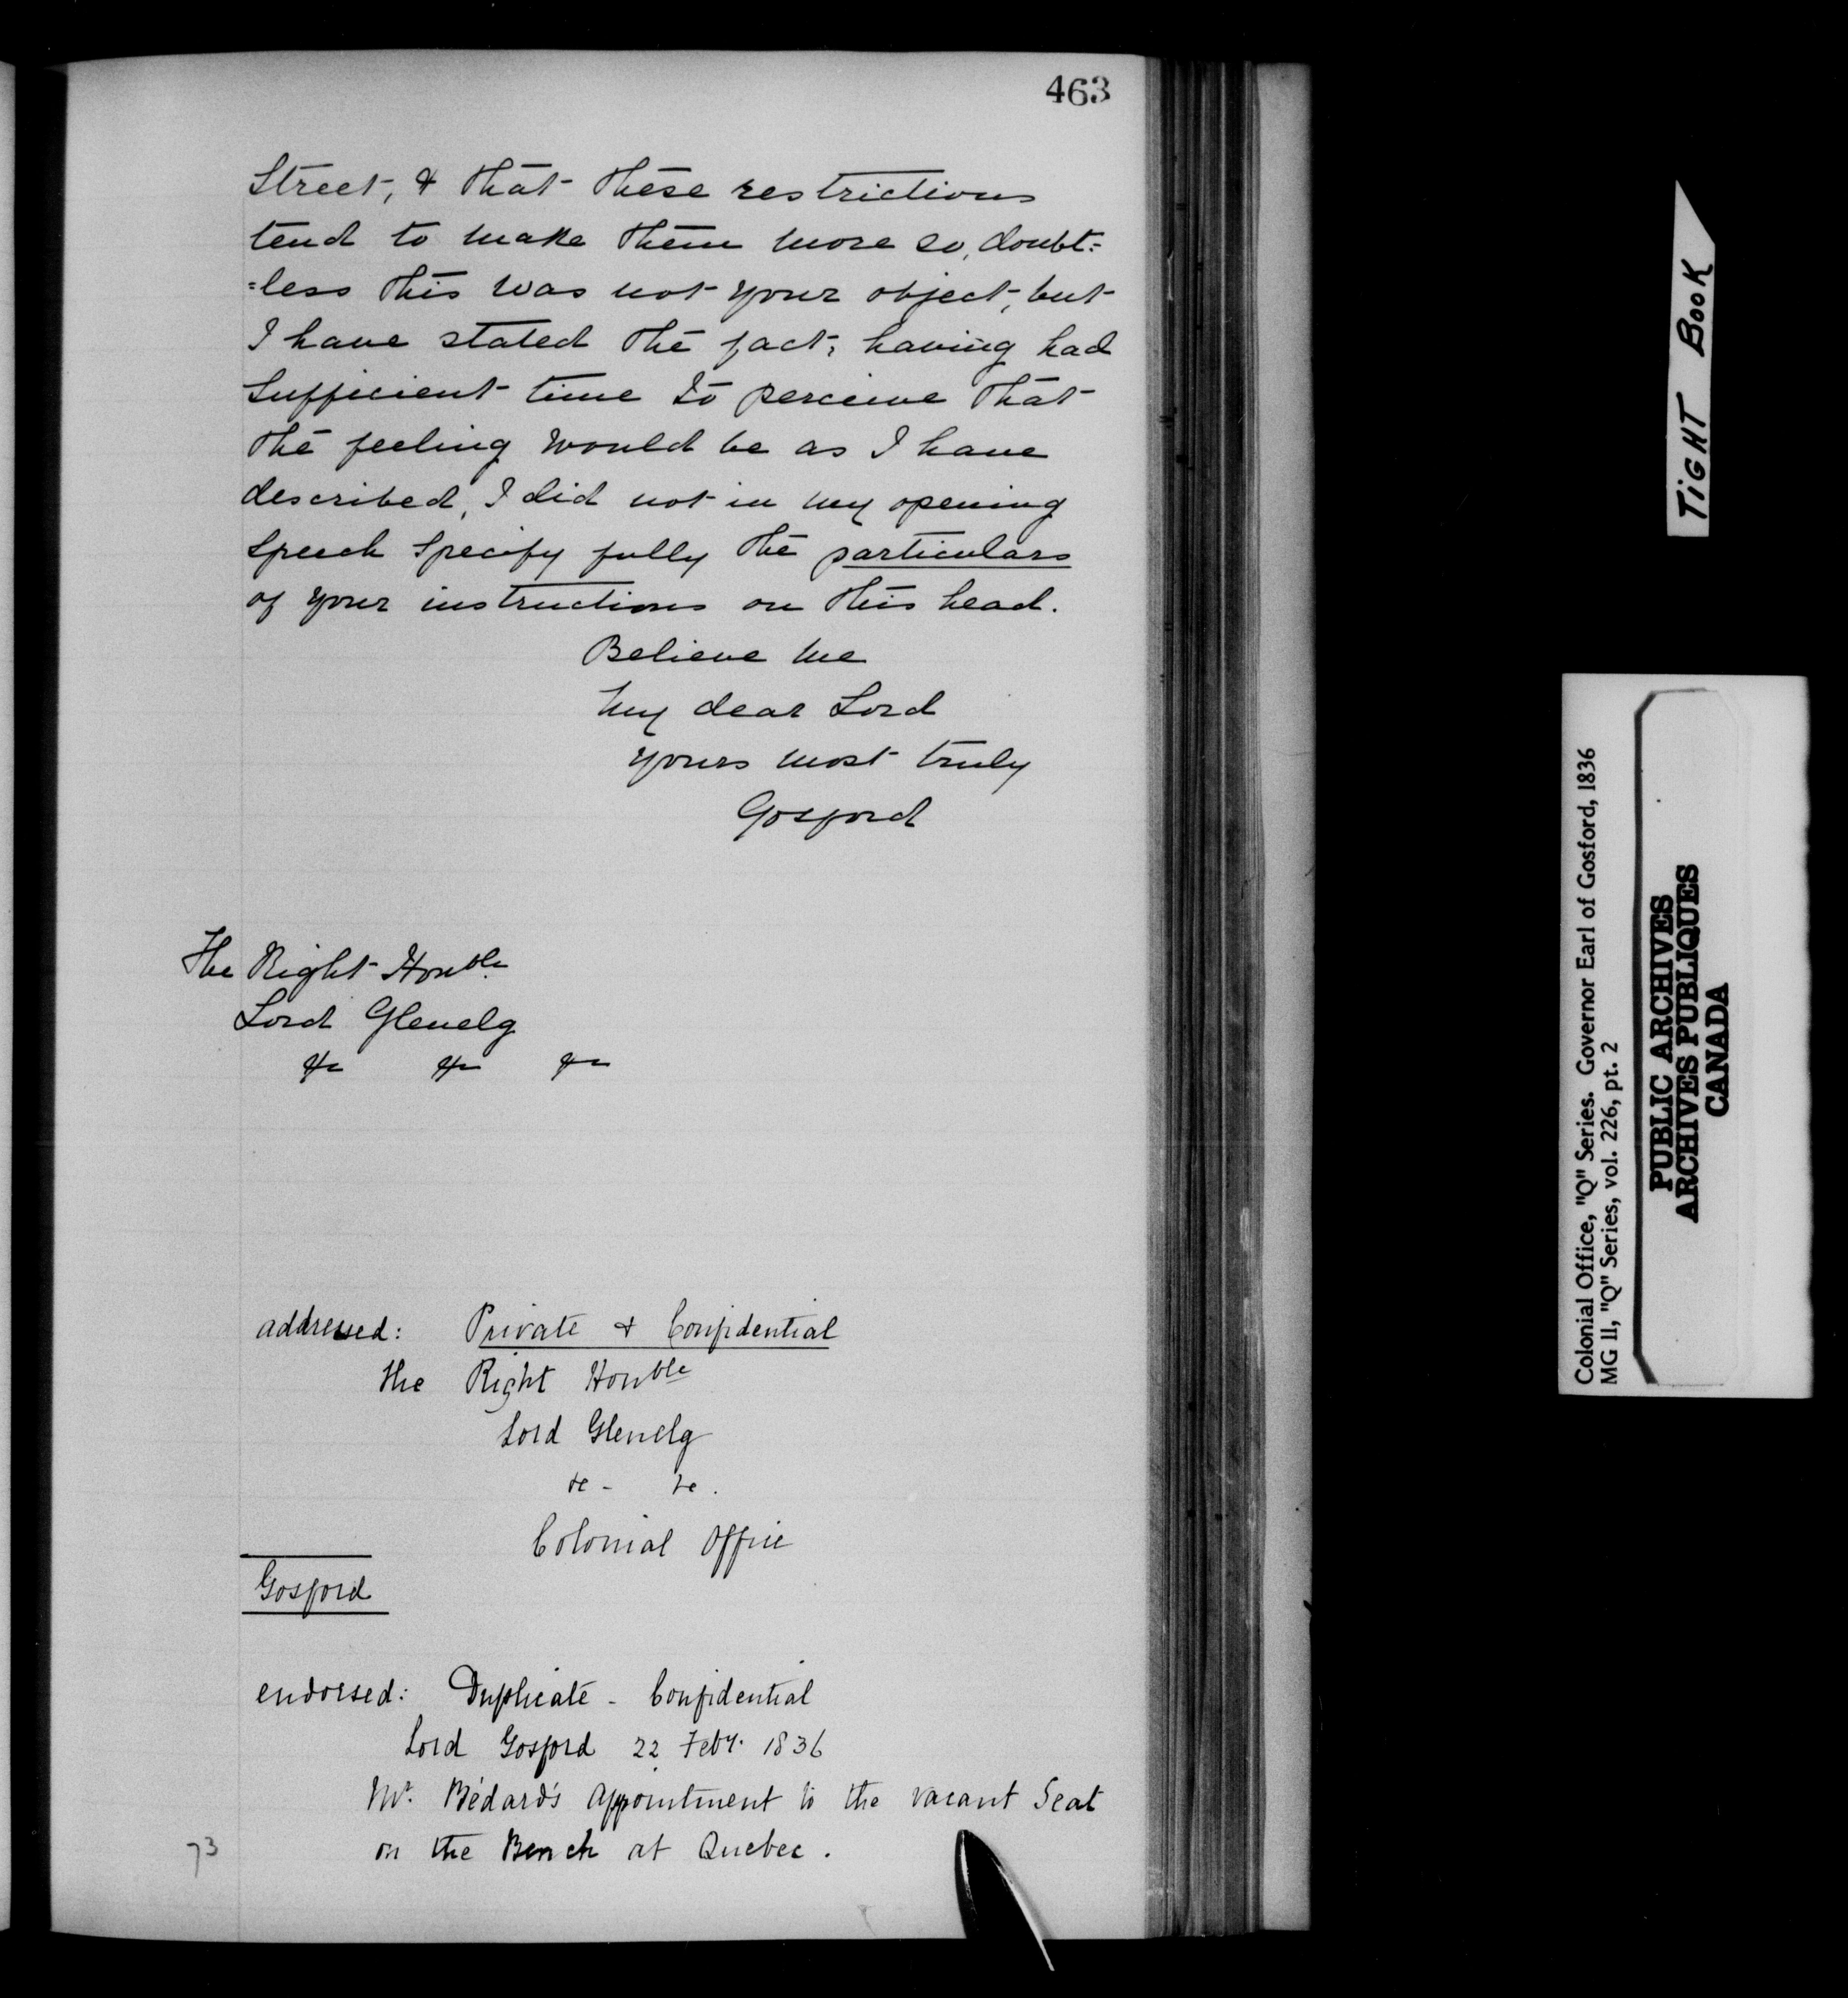 463
Street, & that these restrictions
tend to make them more so, doubt=
=less this was not your object, but
I have stated the fact; having had
sufficient time to perceive that
the feeling would be as I have
described, I did not in my opening
speech specify fully the particulars
of your instructions on this head.
Believe me
my dear Lord
yours most truly
Gosford
The Right Honble
Lord Glenelg
&c &c &c
addressed: Private & Confidential
the Right Honble
Lord Glenelg
&c - &c.
Colonial Office
Gosford
endorsed: Duplicate - Confidential
Lord Gosford 22 Feby. 1836
Mr. Bédard's appointment to the vacant Seat
on the Bench at Quebec.
73
TIGHT BOOK
Colonial Office, "Q" Series. Governor Earl of Gosford, 1836
MG 11, "Q" Series, vol. 226, pt. 2
PUBLIC ARCHIVES
ARCHIVES PUBLIQUES
CANADA